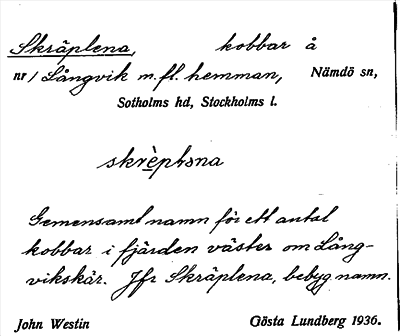 Skräplena, kobbar å
nr 1 Långvik m.fl. hemman, Nämdö sn,
Sotholms hd, Stockholms l.
skrèplsna
Gemensamt namn för ett antal
kobbar i fjärden väster om Lång-
vikskär. Jfr Skräplena, bebyg.namn.
John Westin Gösta Lundberg 1936.